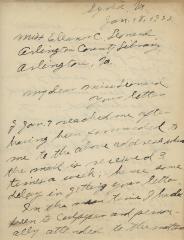 Jan. 18, 1932
Miss Eleanor C. Leonard
Arlington County Library
Arlington, Va.
My dear Miss Leonard
Your letter
of Jan. 7 reached me after
having been forwarded to
me to the above address where
the mail is received 3
times a week; hence some
delay in getting your letter
In the mean time I had
been to Culpeper and person-
ally attended to the matter